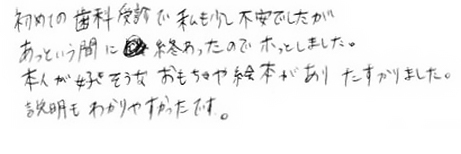 初めての歯科受診で私も少し不安でしたが
あっという間に終わったのでホッとしました。
本人が好きそうなおもちゃや絵本がありたすかりました。
説明もわかりやすかったです。